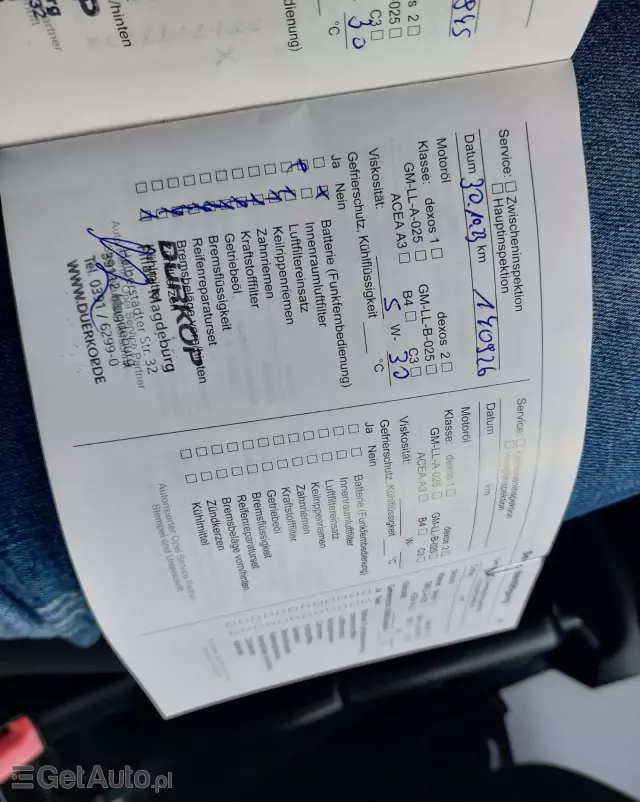 8945
s 2 ☐
-025 ☐
C3 ☐
30
°C
dienung)
/hinten
rg
32
rtner
Service: ☐ Zwischeninspektion
☐ Hauptinspektion
Datum 30.1.23 km 140926
Motoröl
Klasse: dexos 1 ☐ dexos 2 ☐
GM-LL-A-025 ☐ GM-LL-B-025 ☐
ACEA A3 ☐ B4 ☐ C3 ☐
Viskosität: 5 W- 30
Gefrierschutz, Kühlflüssigkeit °C
Ja Nein
Batterie (Funkfernbedienung)
Innenraumluftfilter
Luftfiltereinsatz
Keilrippenriemen
Zahnriemen
Kraftstofffilter
Getriebeöl
Bremsflüssigkeit
Reifenreparaturset
Bremsbeläge vorn/hinten
DÜRKOP
Magdeburg
Halberstädter Str. 32
39112 Magdeburg
Tel. 0391 / 6299-0
WWW.DUERKOP.DE
Service: ☐ Zwischeninspektion
☐ Hauptinspektion
Datum km
Motoröl
Klasse: dexos 1 ☐ dexos 2 ☐
GM-LL-A-025 ☐ GM-LL-B-025 ☐
ACEA A3 ☐ B4 ☐ C3 ☐
Viskosität: W-
Gefrierschutz, Kühlflüssigkeit °C
Ja Nein
Batterie (Funkfernbedienung)
Innenraumluftfilter
Luftfiltereinsatz
Keilrippenriemen
Zahnriemen
Kraftstofffilter
Getriebeöl
Bremsflüssigkeit
Reifenreparaturset
Bremsbeläge vorn/hinten
Zündkerzen
Kühlmittel
Autorisierter Opel Service Partner
Stempel und Unterschrift
GetAuto.pl